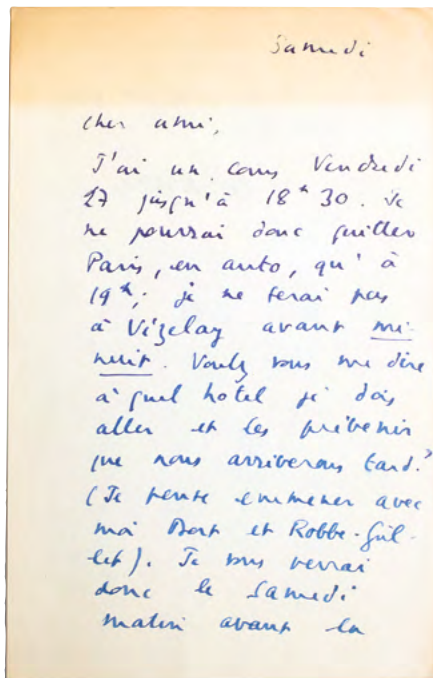 Samedi
cher ami,
J'ai un cours Vendredi
27 jusqu'à 18h 30. Je
ne pourrai donc quitter
Paris, en auto, qu'à
19h; je ne serai pas
à Vézelay avant mi-
nuit. Voulez vous me dire
à quel hôtel je dois
aller et les prévenir
que nous arriverons tard?
(Je pense emmener avec
moi Bort et Robbe-Gril-
let). Je vous verrai
donc le Samedi
matin avant la